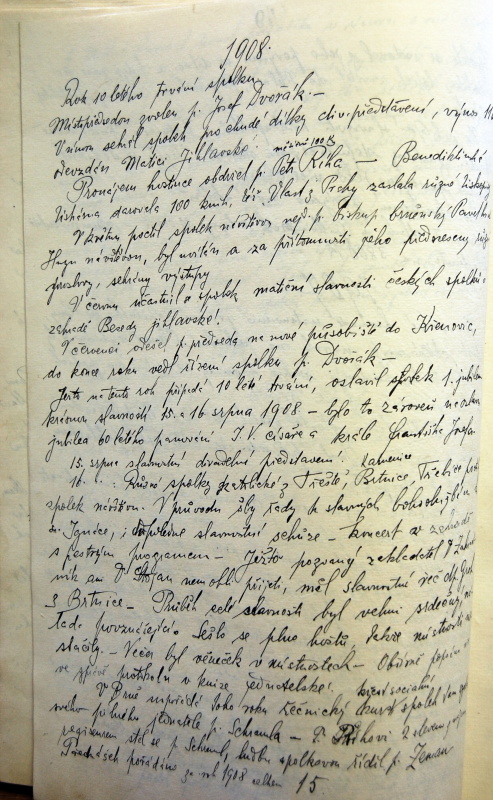 1908.
Rok 10 letého trvání spolku
Místopředsedou zvolen p. Josef Dvořák. —
V únoru sehrál spolek pro chudé dítky div. představení, výnos
odevzdán Matici Jihlavské!
měsíčně 100 K
Pronájem hostince obdržel p. Petr Říha — Benediktinská
tiskárna darovala 100 knih, též Vlast z Prahy zaslala různé
V květnu poctil spolek návštěvou nejd. p. biskup brněnský Pavel
Huyn návštěvou, byl uvítán a za přítomnosti jeho předneseny
proslovy, sehrány výstupy
V červnu účastnil se spolek matiční slavnosti českých spolků
zahradě Besedy jihlavské!
V červenci odešel p. předseda na nové působiště do Křenovic,
do konce roku vedl řízení spolku p. Dvořák —
Ježto na tento rok připadá 10 leté trvání, oslavil spolek 1. jubileum
krásnou slavností 15. a 16. srpna 1908 — bylo to zároveň na oslavu
jubilea 60 letého panování J. V. císaře a krále Františka Josefa
15. srpna slavnostní divadelní představení!
Kamenice
16. „ : Různé spolky katolické z Třeště, Brtnice, Třebíče poctily
spolek návštěvou. V průvodu šly řady k slavným bohoslužbám
sv. Ignáce, odpoledne slavnostní schůze — koncert v zahradě
s pestrým programem — Ježto pozvaný zakladatel P.
ani Dr Stojan nemohl přijeti, měl slavnostní řeč dp.
z Brtnice — Průběh celé slavnosti byl velmi srdečný,
lade povznášející. Sešlo se plno hostů, takže místnosti
stačily. — Večer byl věneček v místnostech — Obšírně popsáno
ve zprávě protokolu v knize jednatelské!
kurs sociální,
V Brně uspořádá toho roku řečnický kurs spolek tam
svého pilného jednatele p. Schamla — P. Říhovi
regisseurem stal se p. Schaml, hudbu spolkovou řídil p. Zeman
Přednášek pořádáno za rok 1908 celkem 15.